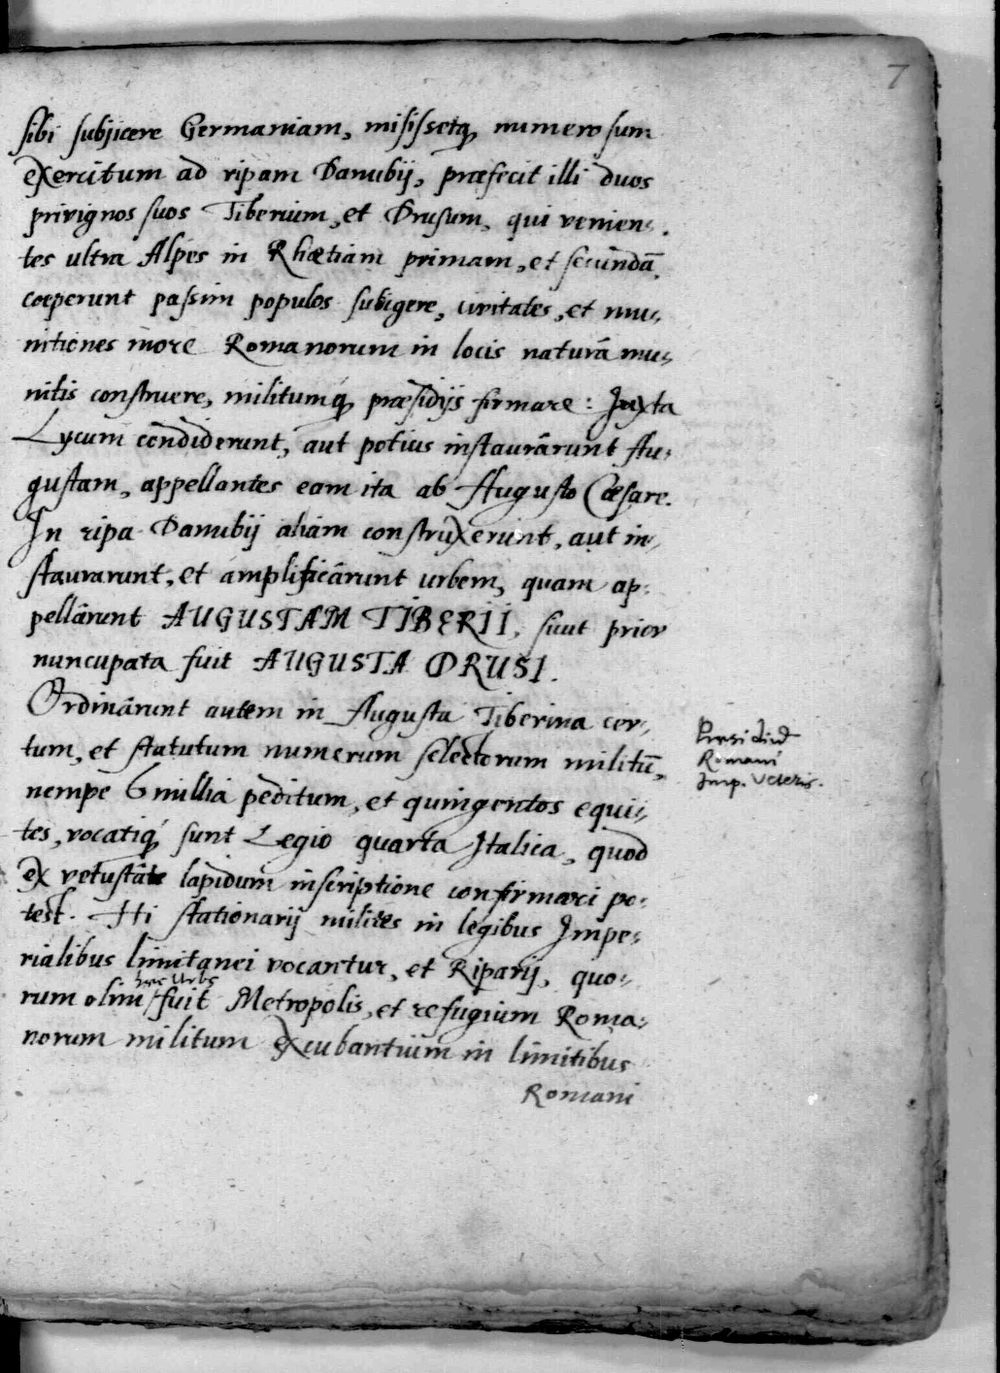 7
sibi subjicere Germaniam, misissetq́ numerosum
exercitum ad ripam Danubij, præfecit illi duos
privignos suos Tiberium, et Drusum, qui venien-
tes ultra Alpes in Rhætiam primam, et secundā,
cœperunt passim populos subigere, civitates, et mu-
nitiones more Romanorum in locis naturâ mu-
nitis construere, militumq́ præsidijs firmare: Juxta
Lycum condiderunt, aut potius instaurârunt Au-
gustam, appellantes eam ita ab Augusto Cæsare.
In ripa Danubij aliam construxerunt, aut in-
staurarunt, et amplificârunt urbem, quam ap-
pellârunt AUGUSTAM TIBERII, sicut prior
nuncupata fuit AUGUSTA DRUSI.
Ordinârunt autem in Augusta Tiberina cer-
tum, et statutum numerum selectorum militū,
nempe 6 millia peditum, et quingentos equi-
tes, vocatiq́ sunt Legio quarta Italica, quod
ex vetustate lapidum inscriptione confirmari po-
test. Hi stationarij milites in legibus Impe-
rialibus limitanei vocantur, et Riparij, quo-
hæc Urbs
rum olim fuit Metropolis, et refugium Roma-
norum militum excubantium in limitibus
Romani
Præsidiū
Romani
Imp. Veteris.